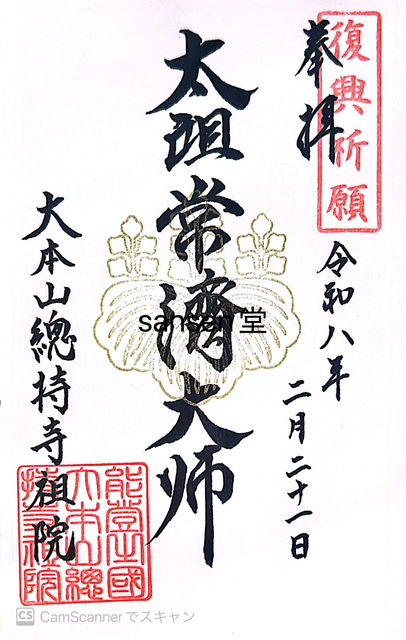 復興祈願
奉拝
令和八年
二月二十一日
太祖常濟大师
大本山總持寺祖院
能登國
大本山總
持寺祖院
sansen堂
CS CamScannerでスキャン